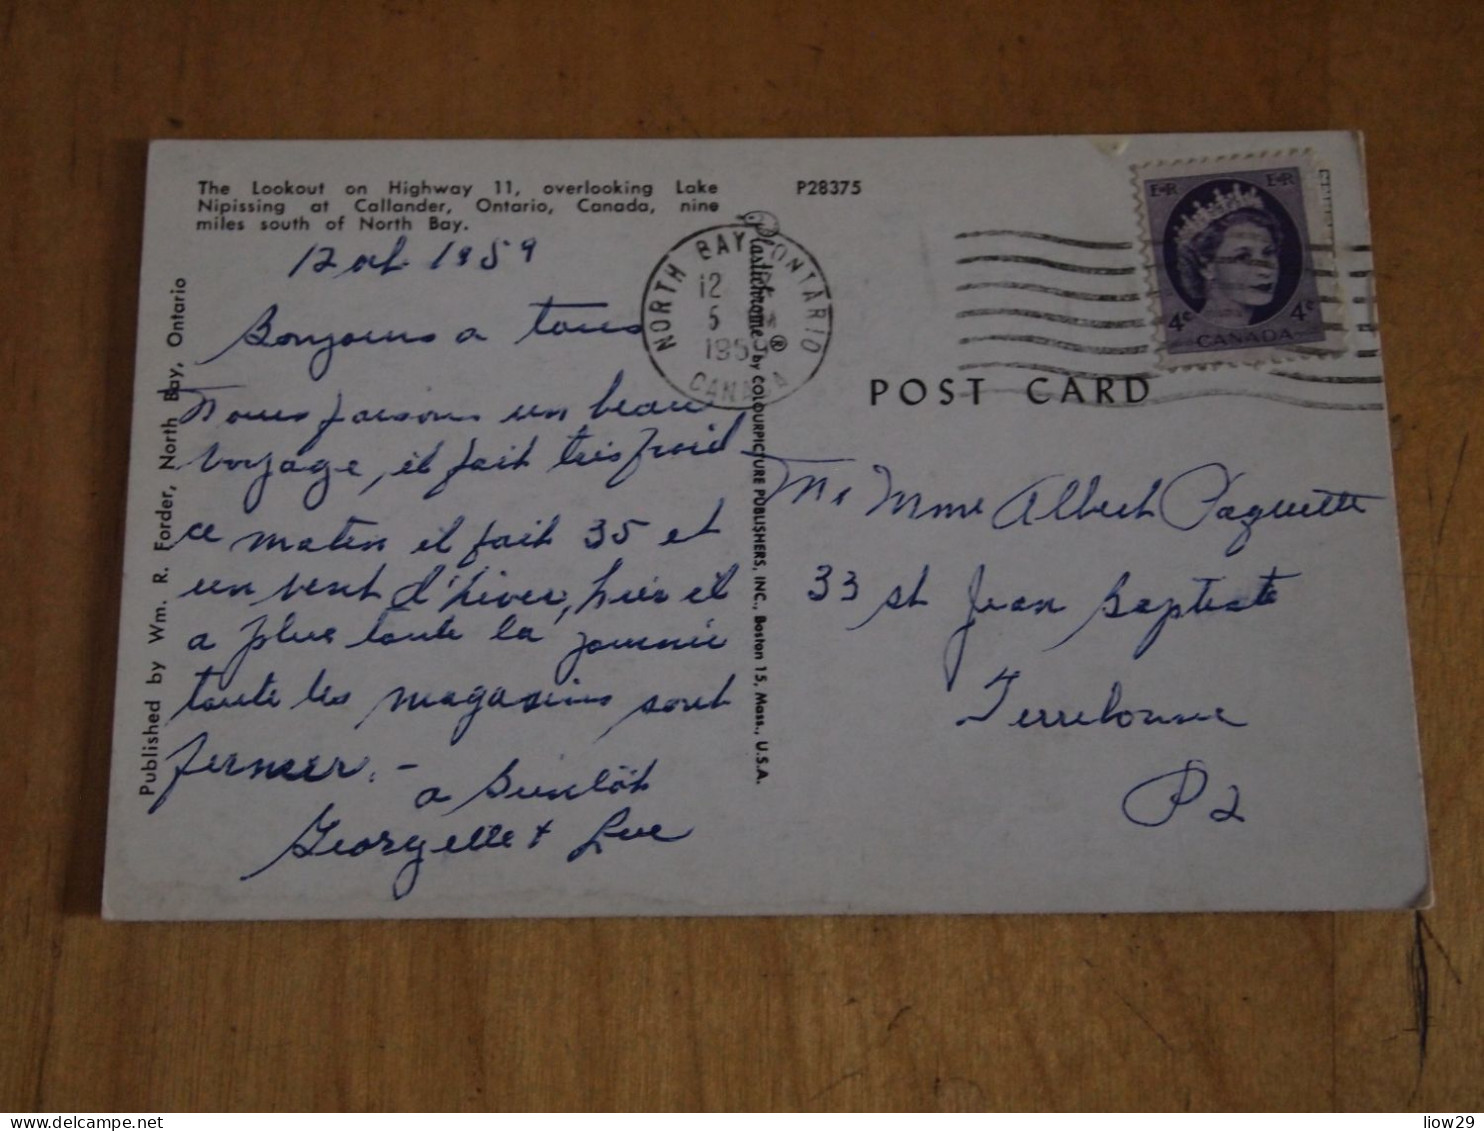 The Lookout on Highway 11, overlooking Lake
Nipissing at Callander, Ontario, Canada, nine
miles south of North Bay.
P28375
12 oct. 1959
Bonjours a tous
Nous faisons un beau
voyage, il fait très froid
ce matin il fait 35 et
un vent d'hiver, hier il
a plue toute la journée
toute les magasins sont
fermer. -
a Bientôt
Georgelle + Luc
Published by Wm. R. Forder, North Bay, Ontario
Plastichrome ® by COLOURPICTURE PUBLISHERS, INC., Boston 15, Mass., U.S.A.
NORTH BAY ONTARIO
12
5
195
CANADA
E R E R
4c 4c
CANADA
POST CARD
Mr Mme Albert Paquette
33 st Jean Baptiste
Terrebonne
P2
liow29